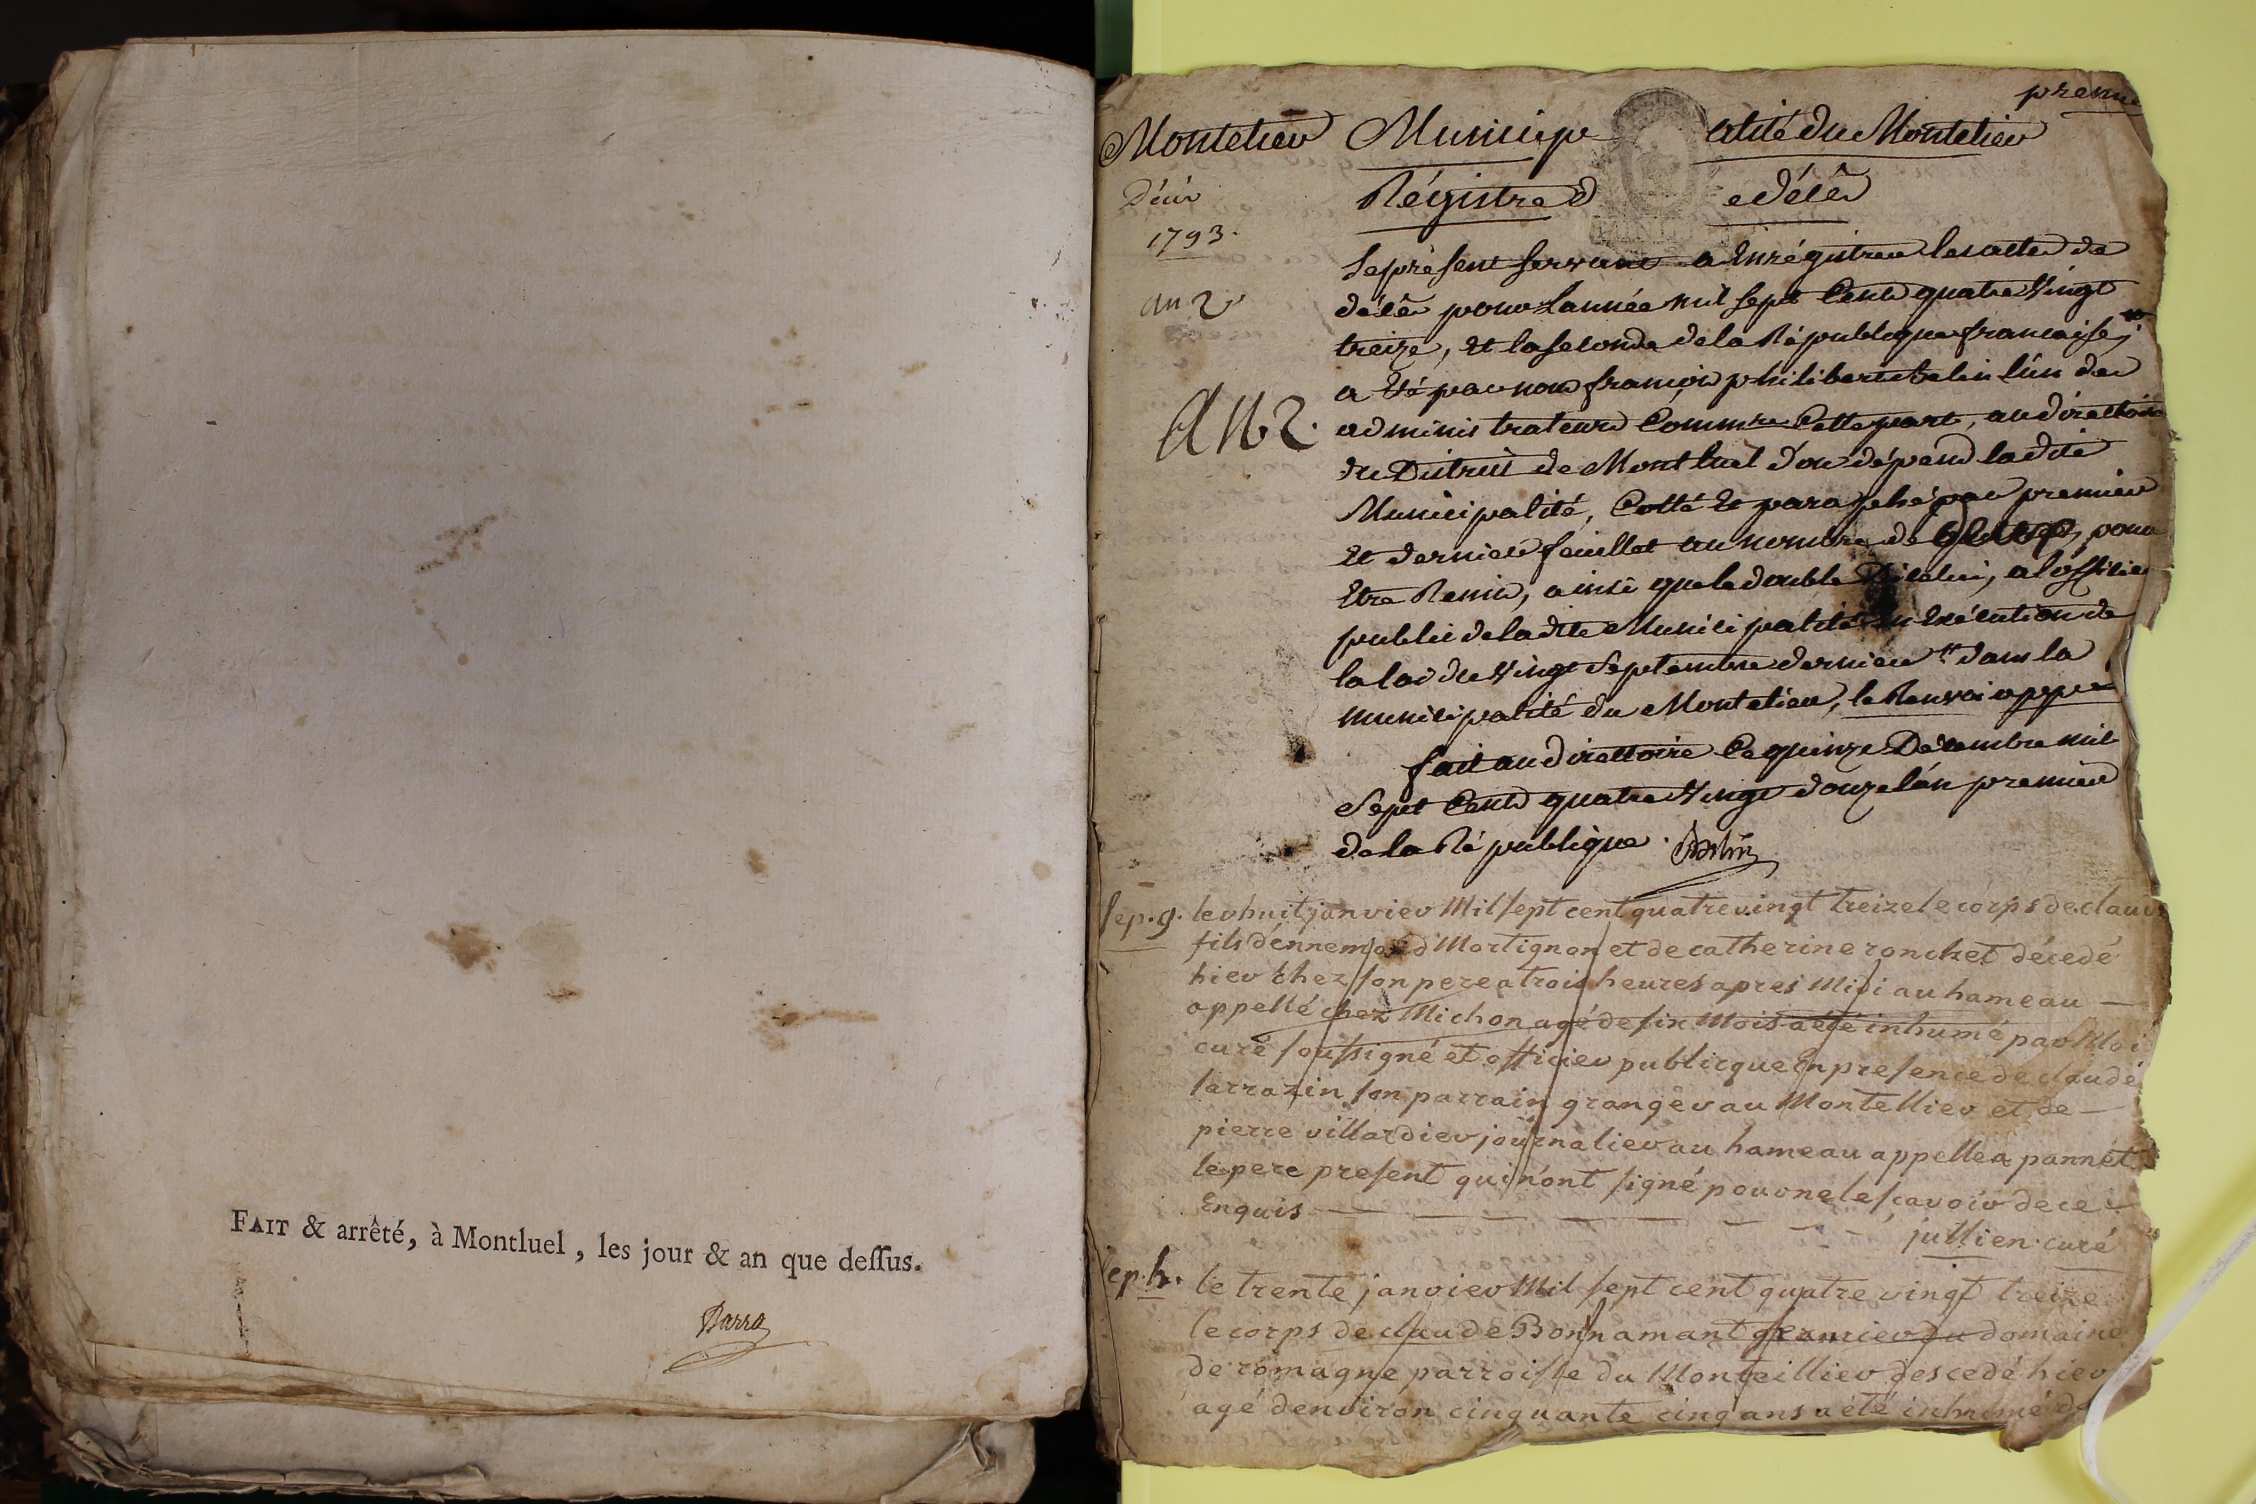 FAIT & arrêté, à Montluel, les jour & an que deſſus.
Barra
premie
Montelier Municipalité du Montelier
Décès Régistre de décès
1793.
an 2
Le présent servant a Enrégistrer les actes de
décès pour L'année mil sept Cents quatre Vingt
treize, et la seconde de la République francaise,
a Eté par nous françois philibert belin l'un des
AN 2.
administrateurs Commre Cette part, au directoire
du District de Montluel d'ou dépend ladite
Municipalité, Cotté et paraphé par premier
et dernier feuillet au nombre de pour
Etre Remis, ainsi que le double d'icelui, a l'officier
public de ladite Municipalité En Exécution de
la loi du Vingt Septembre dernier " dans la
municipalité du Montelier, le Renvoi appr
fait au directoire Ce quinze Décembre mil
Sept Cents quatre Vingt douze l'an premier
de la République. Belin
sep. g. le vhuit janvier Mil sept cent quatre vingt treize le corps de claude
fils d'ennemond Martignon et de catherine ronchet décedé
hier chez son pere a trois heures apres Midi au hameau —
appellé chez Michon agé de six Mois a été inhumé par Moi
curé soussigné et officier publicque En presence de claude
sarrazin son parrain granger au Montellier et de —
pierre villardier journalier au hameau appellé a pannet
le pere present qui n'ont signé pour ne le scavoir de ce
Enquis — — — — — —
jullien curé
sep. h. le trente janvier Mil sept cent quatre vingt treize
le corps de claude Bonnamant granier du domaine
de romagne parroisse du Monteillier descedé hier
agé d'environ cinquante cinq ans a été inhumé